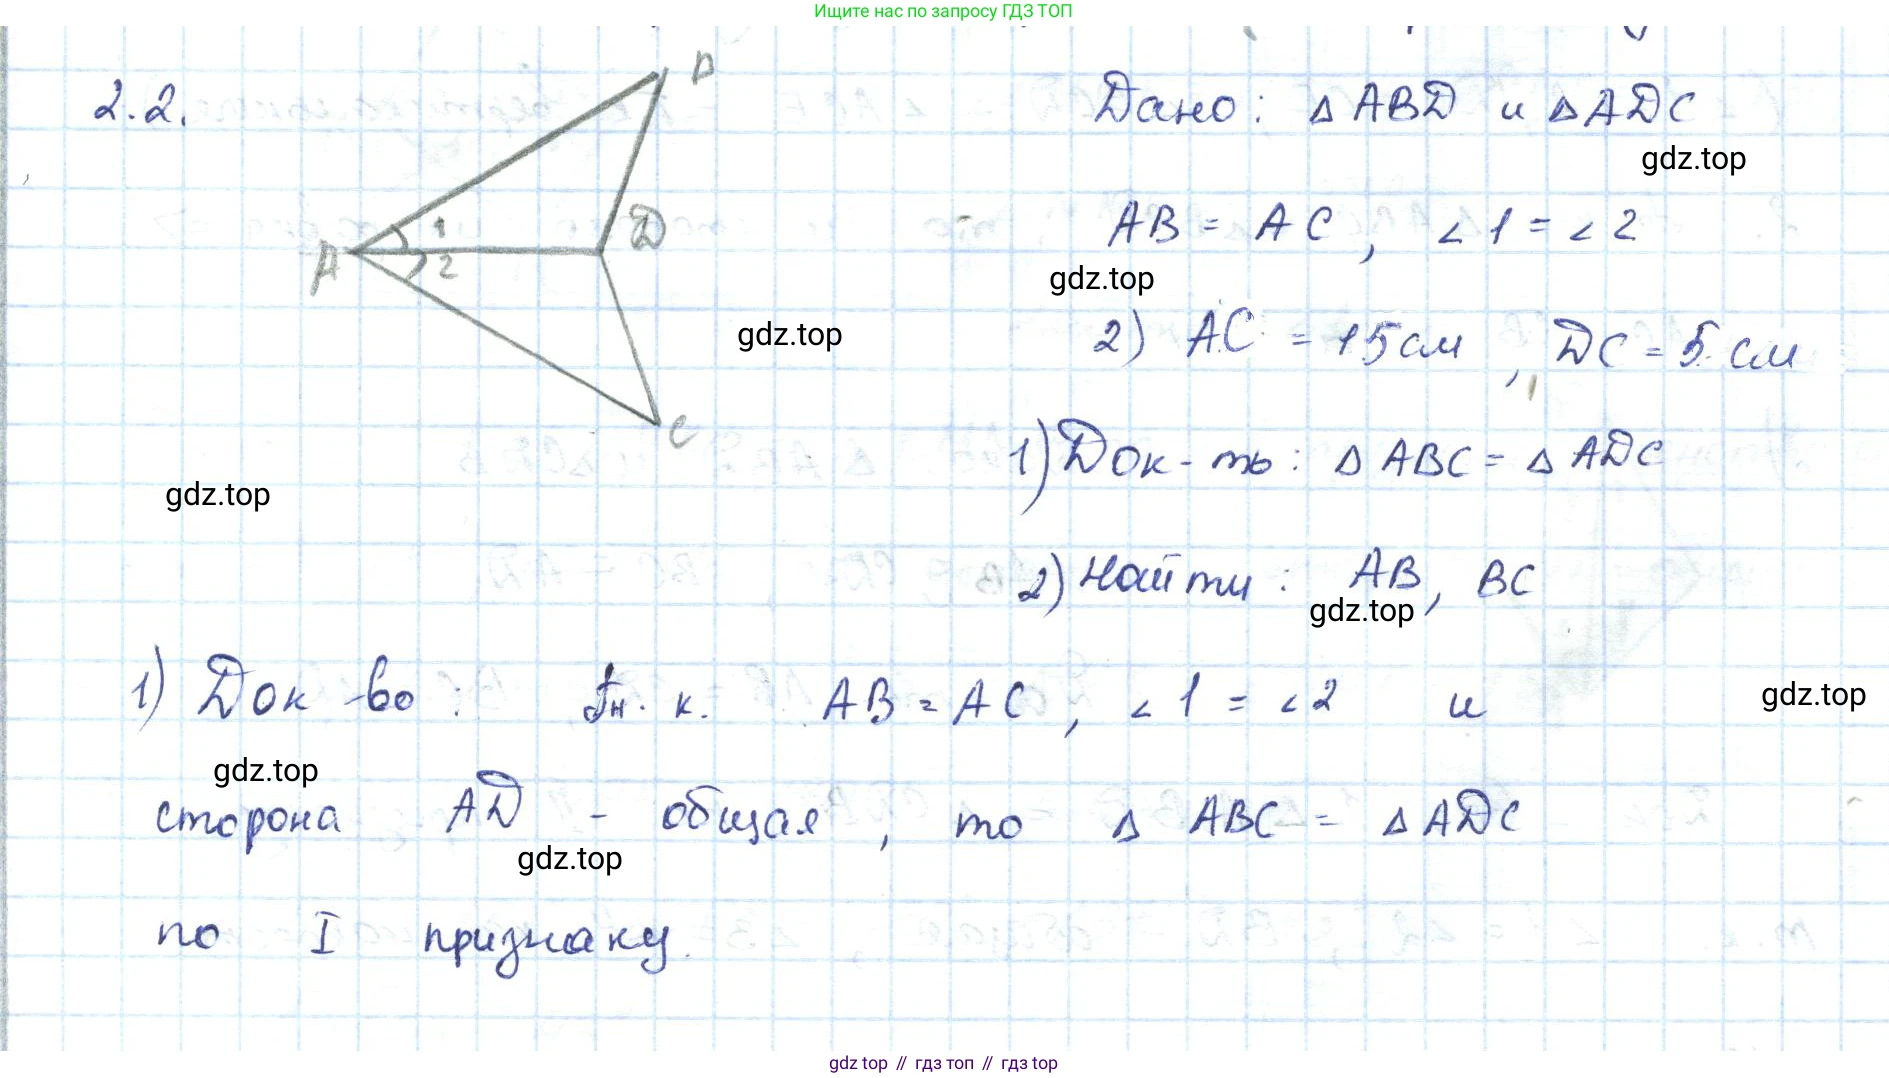 Ищите нас по запросу ГДЗ ТОП
2.2.
D
Дано: Δ ABD и Δ ADC
gdz.top
1
D
A
2
AB = AC, ∠1 = ∠2
gdz.top
gdz.top
2) AC = 15 см, DC = 5 см
C
1) Док-ть: Δ ABC = Δ ADC
gdz.top
2) Найти: AB, BC
gdz.top
1) Док-во: Т.к. AB = AC, ∠1 = ∠2 и
gdz.top
gdz.top
сторона AD - общая, то Δ ABC = Δ ADC
gdz.top
по I признаку.
gdz.top // гдз топ // гдз top